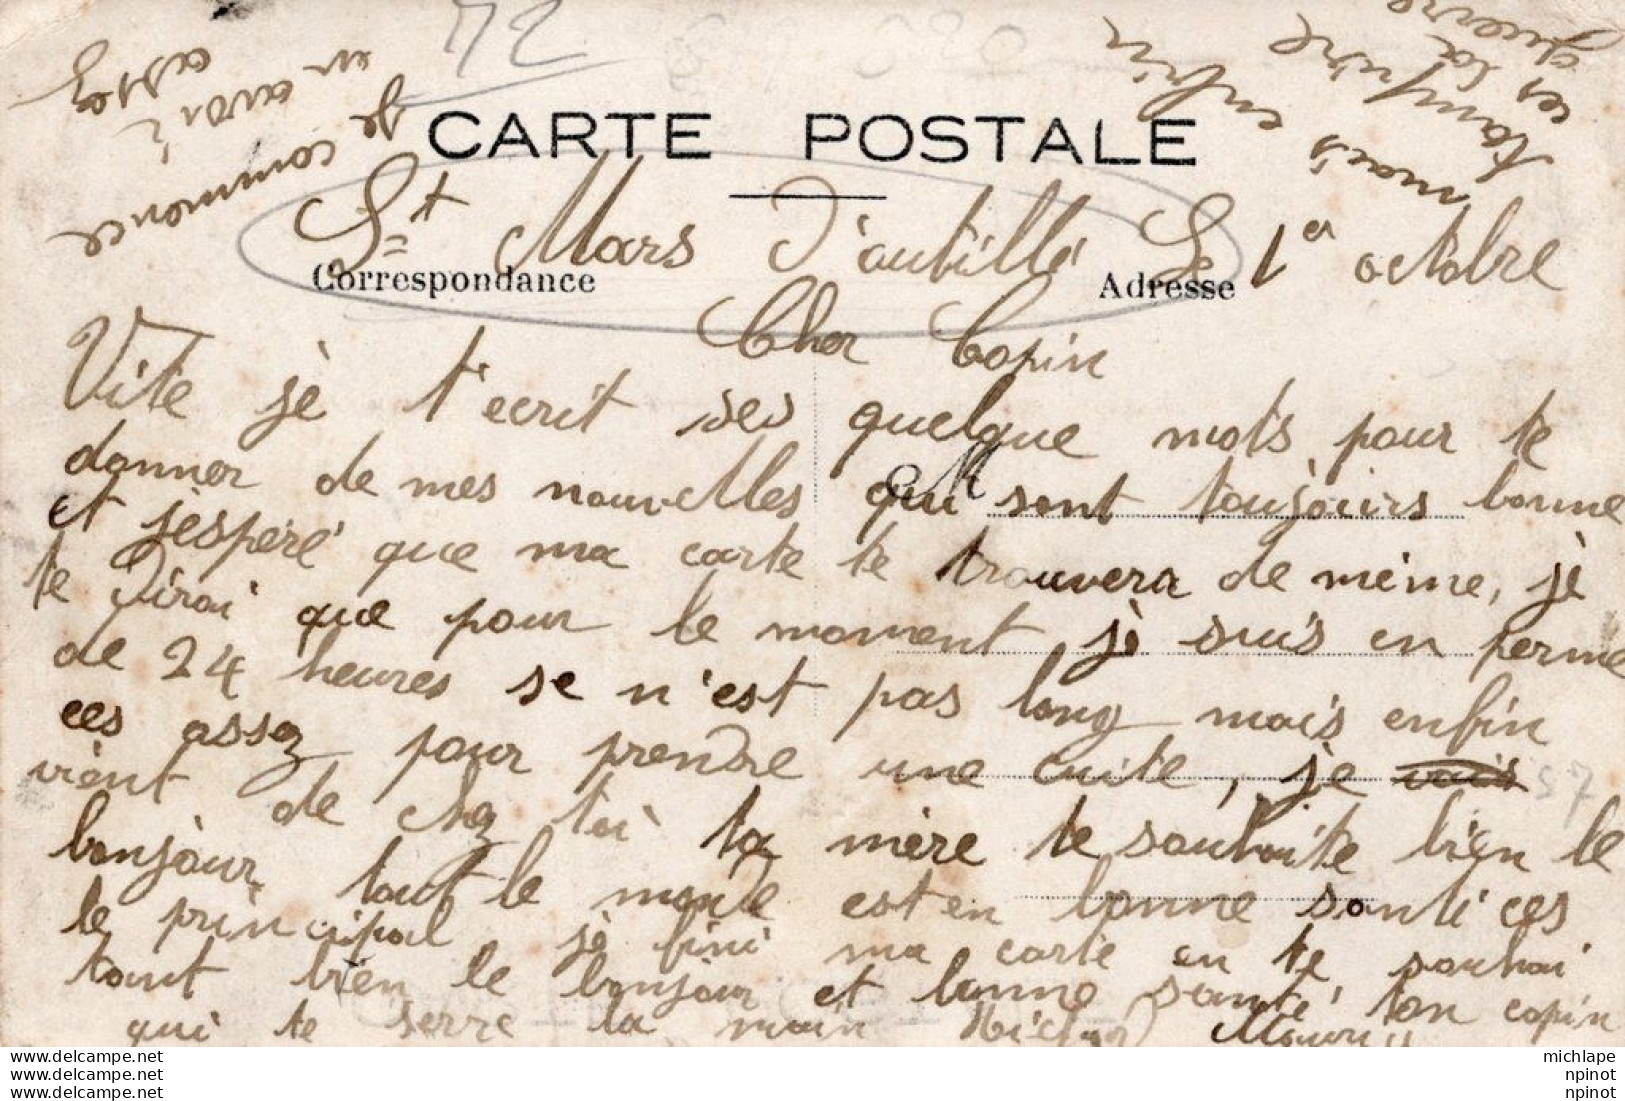 72
CARTE POSTALE
St Mars D'autillé Le 1er octobre
Correspondance
Adresse
Cher Copin
Vite jè t'ecrit ses quelque mots pour te
donner de mes nouvelles qui sont toujours bonne
et j'esperé que ma carte te trouvera de mème, jè
te Dirai que pour le moment jè suis en perme
de 24 heures se n'est pas long mais enfin
ces assez pour prendre une cuite, je vais
vient de chez toi ta mère te souhaite bien le
bonjour tout le monde est en bonne santé ces
le principal je fini ma carte en te souhai
tant bien le bonjour et bonne santé ton copin
qui te serre la main Maurice
je commence
en avoir
assez
mais enfin
ces la
guerre
michlape
npinot
npinot
www.delcampe.net
www.delcampe.net
www.delcampe.net